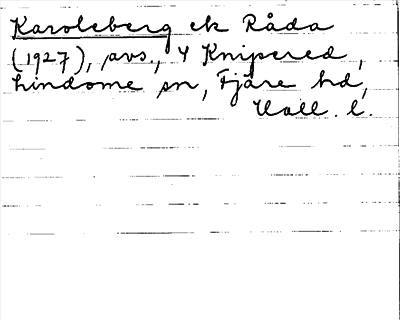 Karolsberg ek Råda
(1927), avs., 4 Knipered,
Lindome sn, Fjäre hd,
Hall. l.